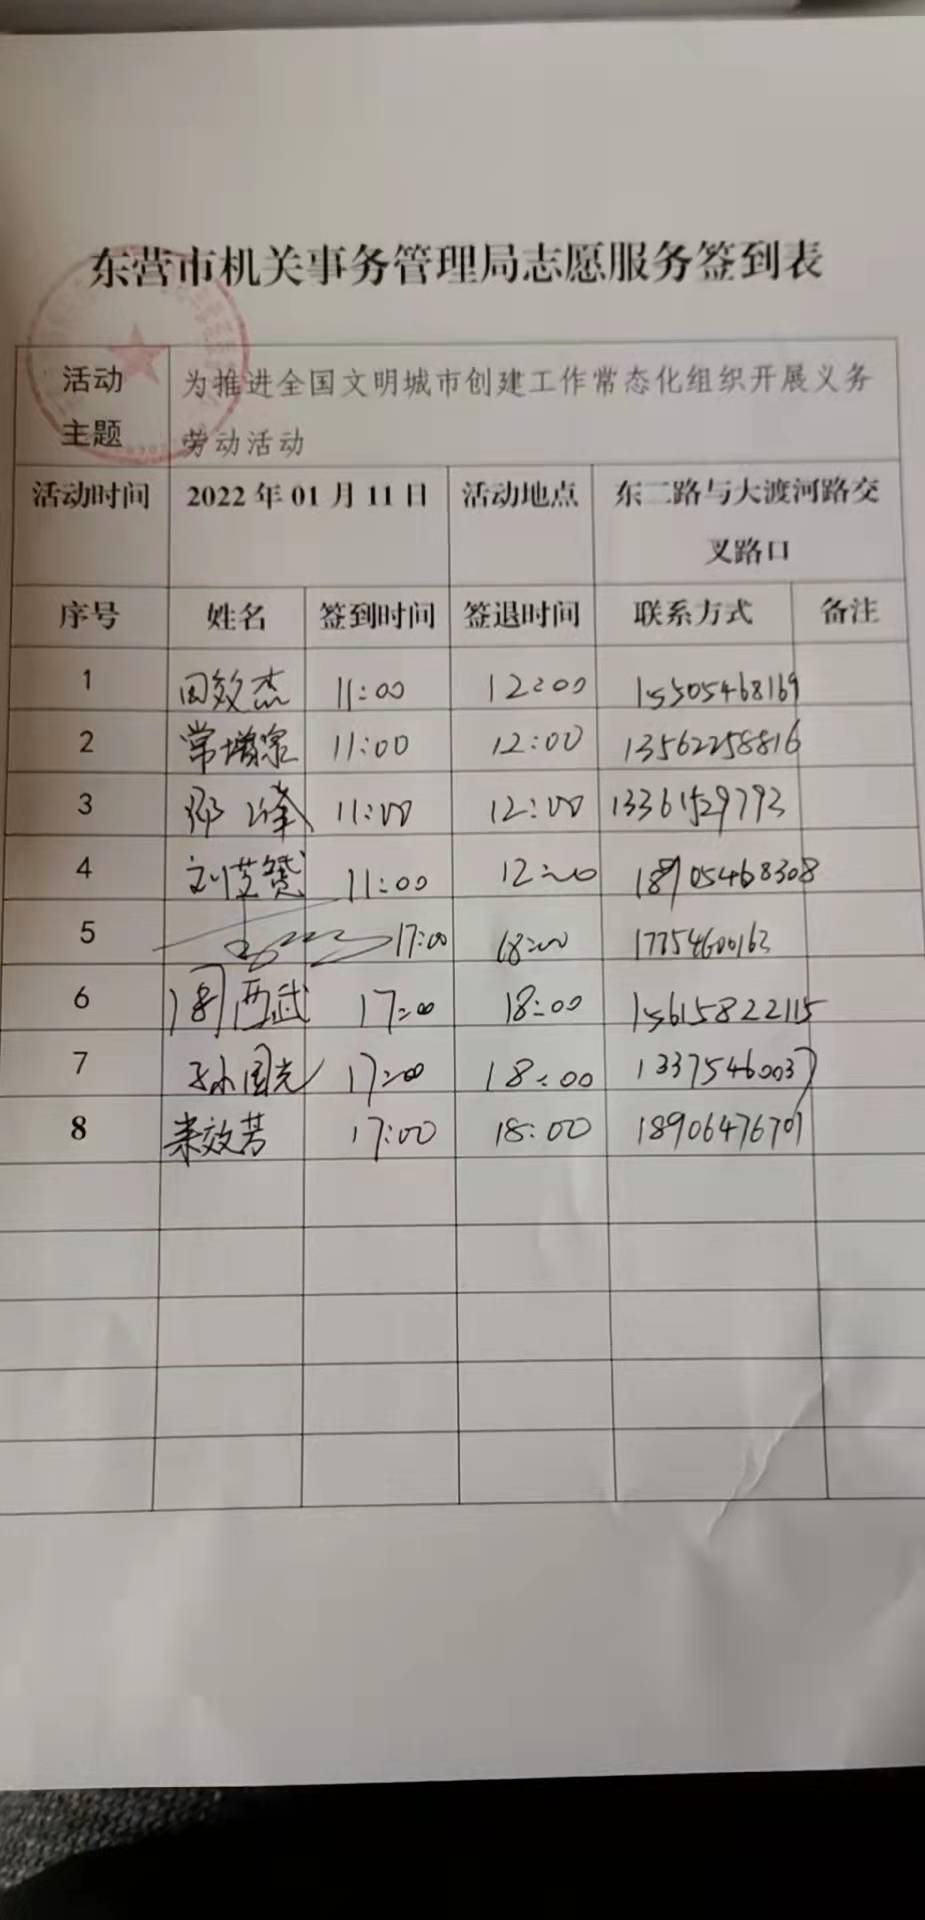 东营市机关事务管理局志愿服务签到表
活动主题 为推进全国文明城市创建工作常态化组织开展义务
劳动活动
活动时间 2022年01月11日 活动地点 东二路与大渡河路交
叉路口
序号 姓名 签到时间 签退时间 联系方式 备注
1 田效杰 11:00 12:00 15505468169
2 常增泉 11:00 12:00 13562258816
3 邓峰 11:00 12:00 13361529793
4 刘芝赞 11:00 12:00 18905468308
5 17:00 18:00 17754600163
6 周西武 17:00 18:00 15615822115
7 孙国光 17:00 18:00 13375460037
8 来效芳 17:00 18:00 18906476701